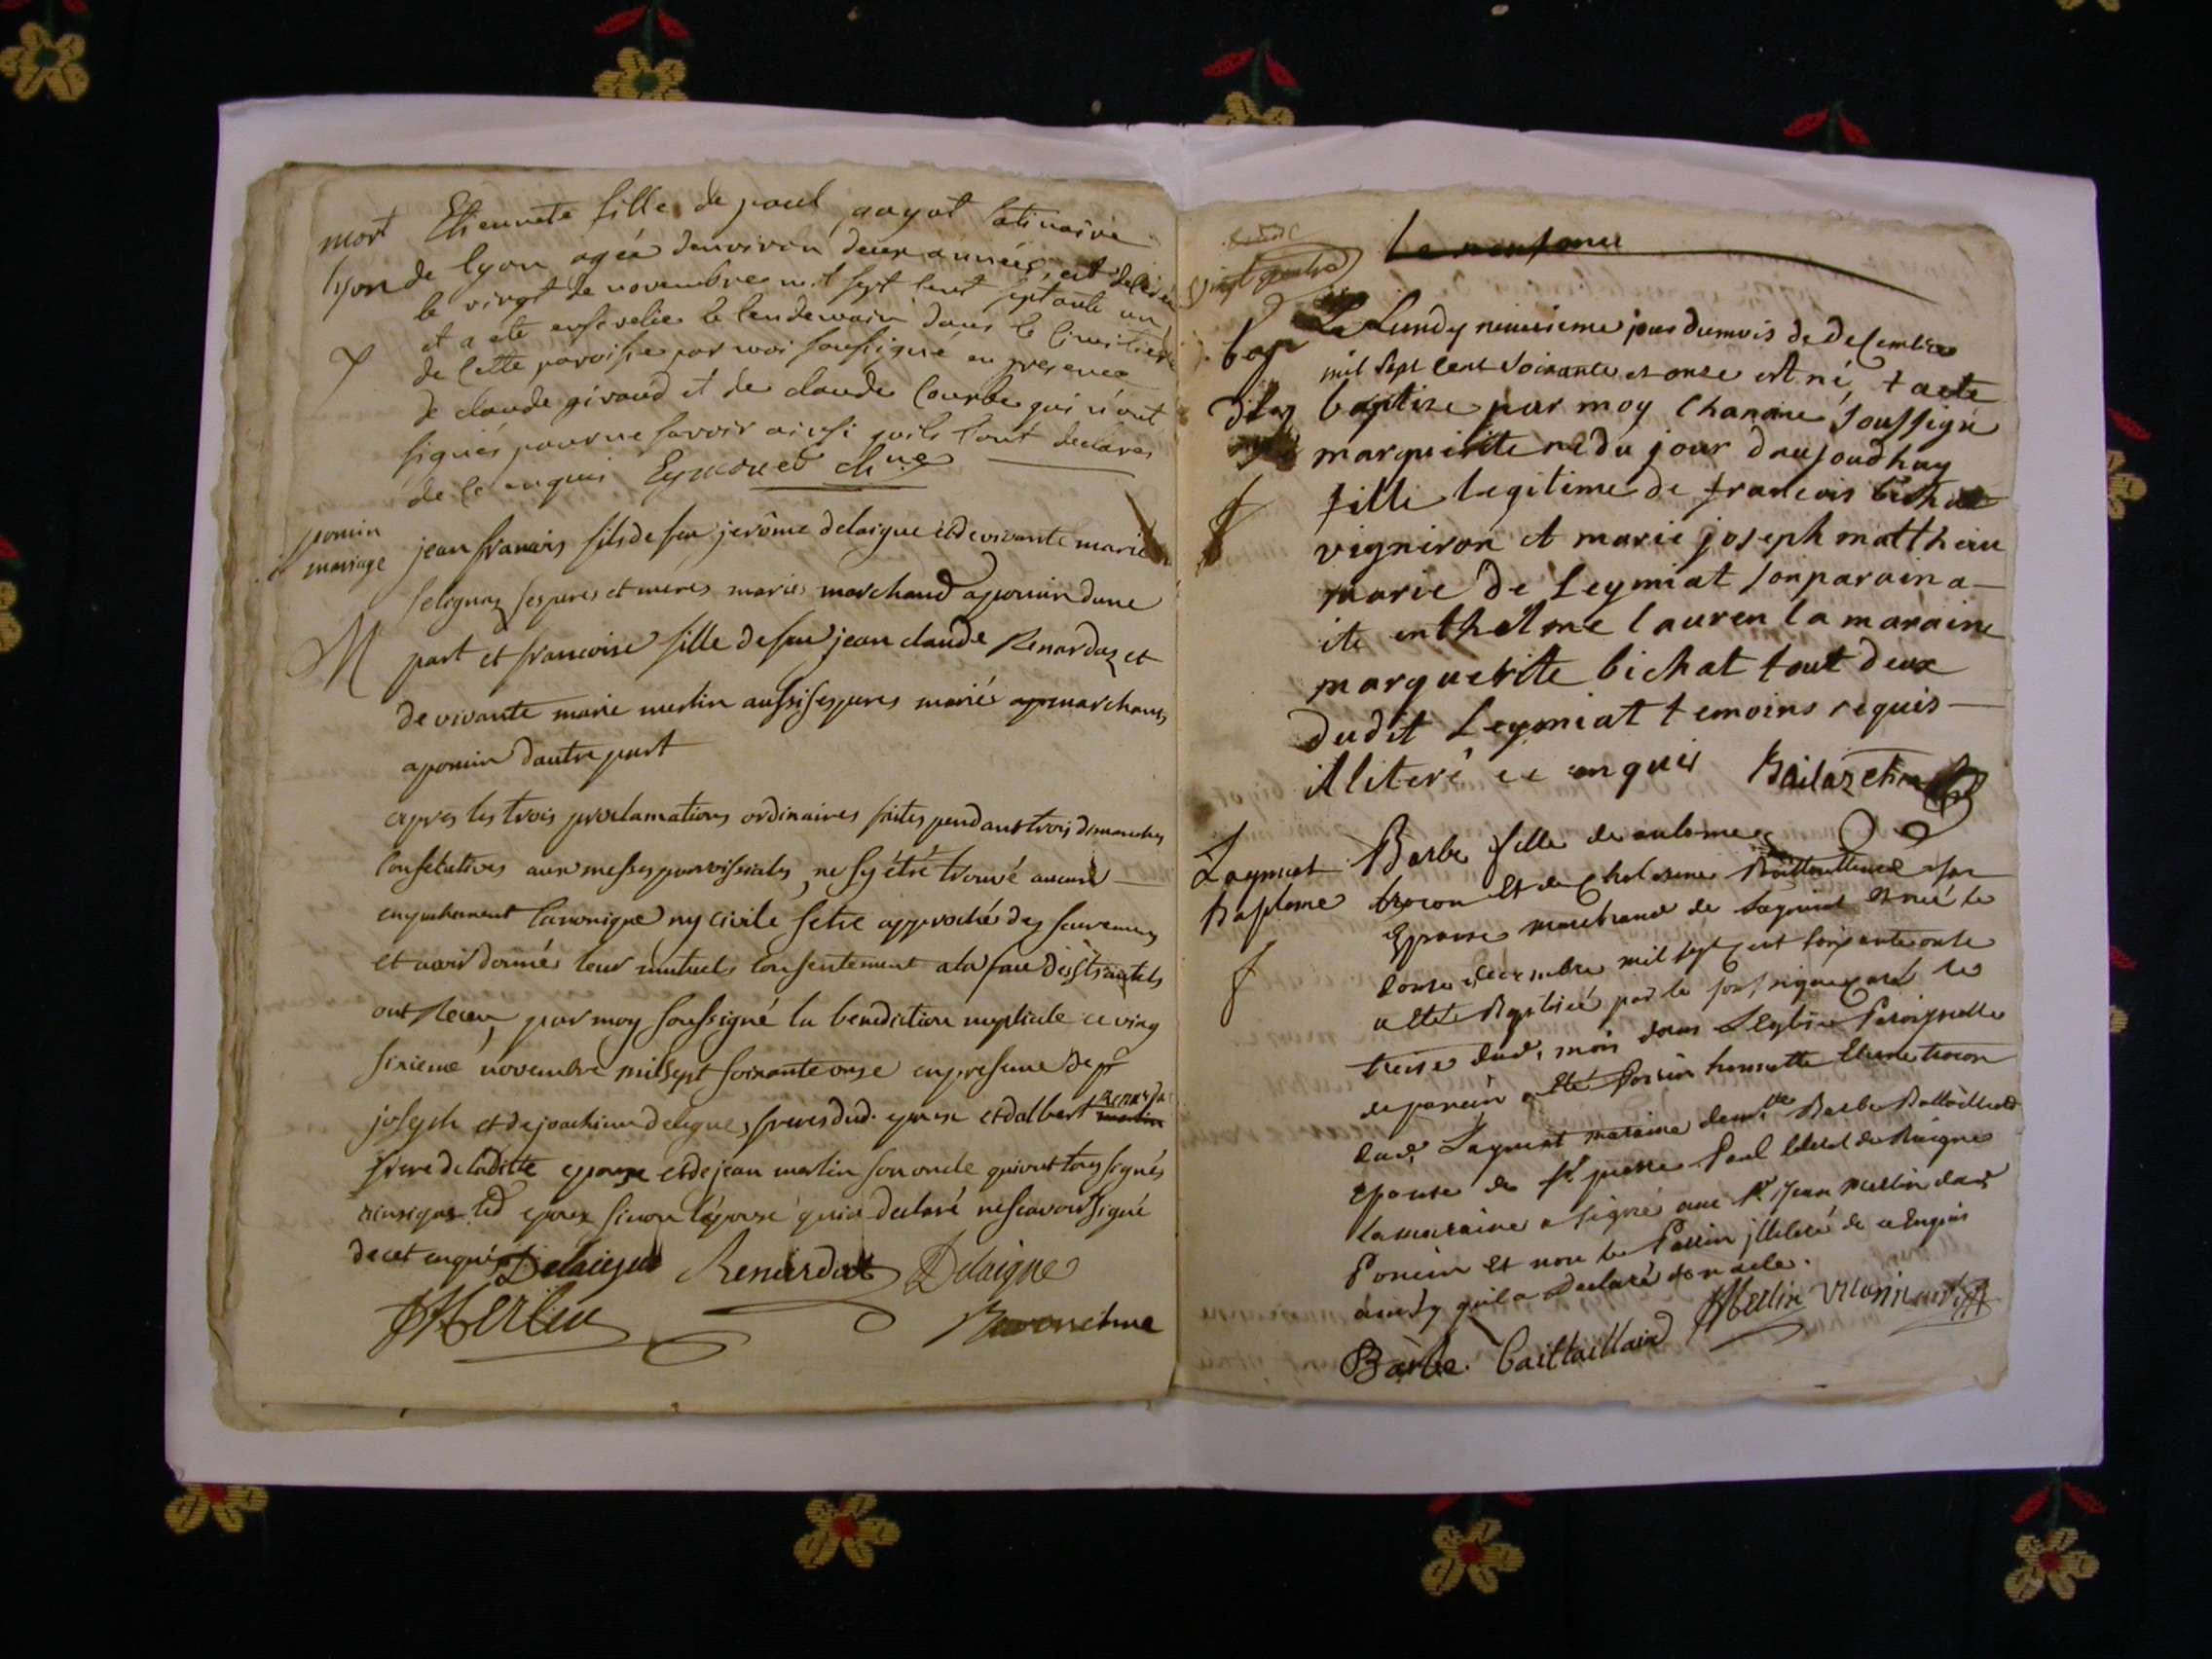 mort Etiennete fille de paul payot satinaire
lyon de lyon agéé denviron deux années, est decedée
le vingt de novembre mil sept cent septante un
et a ete ensevelie le lendemain dans le cimitiere
de cette paroisse par moi soussigné en presence
de claude giraud et de claude Courbe qui n'ont
signés pour ne savoir ainsi quils l'ont declares
de ce enquis Eymonet ch.ne
poncin
mariage
jean francois fils de feu jerôme delaigue et de vivante marie
selignaz ses peres et meres mariés marchand a poncin dune
M
part et francoise fille de feu jean claude Renardaz et
de vivante marie merlin aussi ses peres mariés marchands
a poncin dautre part
apres les trois proclamations ordinaires faites pendant trois dimanches
consecutives aux messes parroissiales, ne sy étre trouvé aucun
empechement canonique ny civile setre approchés des sacremens
et avoir donnés leur mutuels consentement a la face des Sts autels
ont Receu par moy soussigné la benediction nuptiale ce ving
sixieme novembre mil sept soixante onze en presence de
joseph et de joachim delegue, freres dud. epoux et dalbert merlin Renarda
frere de laditte epouse et de jean merlin son oncle qui ont tous signés
ainsi que led epoux sinon l'épouse qui a declaré ne scavoir signé
de cet enquis Delaigue Renardat Delaigue
JMerlin
vingt quatre
Le neufans
bap
Le Lundy neuvieme jour du mois de decembre
mil sept cent soixante et onse est né, & a ete
baptize par moy chanoine soussigné
marguerite né du jour daujoudhuy
fille legitime de francois bichat
vigneron et marie joseph matthieu
marie de Leymiat son parain a
ite enthelme lauren la maraine
marguerite bichat tout deux
dudit Leymiat temoins requis
illiteré ce enquis Bailaz chne
Laymiat
Bapteme
Barbe fille de anthme
trocon et de
Epouse marchand de Laymiat est née le
douze decembre mil sept cent soixante onze
a été Baptisée par le soussigné curé le
treise dud. mois dans L'Eglise Paroissielle
de poncin a été Parrin honnette Etiene trocon
dud. Laymiat maraine demlle Barbe Battaillard
epouse de Sr pierre Paul
la maraine a signé avec Sr jean merlin dud
Poncin et non le Parrin illiteré de ce Enquis
ainsy quil a Declaré donacte.
Barbe Baittaillaird JMerlin